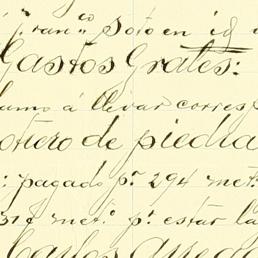 Fran.co Soto en id
Gastos Grales:
á llevar corresp
otrero de piedra
: pagado pr. 294 met.
met.s pr. estar la
Carlos